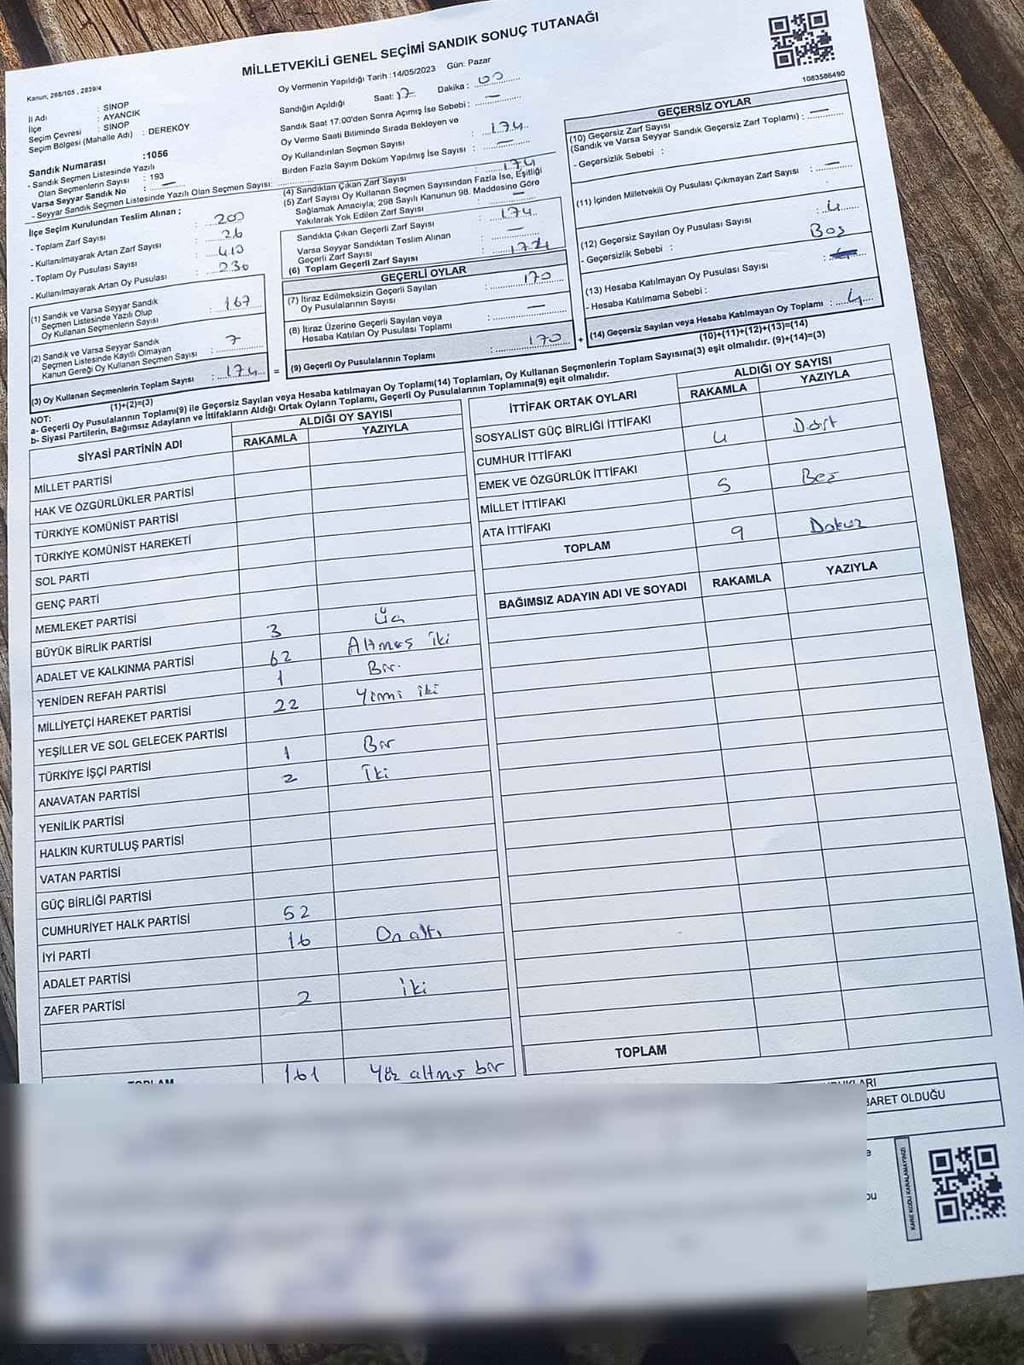 MİLLETVEKİLİ GENEL SEÇİMİ SANDIK SONUÇ TUTANAĞI
Kanun; 298/105 , 2839/4
Oy Vermenin Yapıldığı Tarih :14/05/2023 Gün: Pazar
1083586490
İl Adı : SİNOP
İlçe : AYANCIK
Seçim Çevresi : SİNOP
Seçim Bölgesi (Mahalle Adı) : DEREKÖY
Sandık Numarası :1056
- Sandık Seçmen Listesinde Yazılı
Olan Seçmenlerin Sayısı : 193
Varsa Seyyar Sandık No : —
- Seyyar Sandık Seçmen Listesinde Yazılı Olan Seçmen Sayısı:
Sandığın Açıldığı Saat: 17 Dakika : 00
Sandık Saat 17.00'den Sonra Açılmış İse Sebebi : —
Oy Verme Saati Bitiminde Sırada Bekleyen ve
Oy Kullandırılan Seçmen Sayısı : 174
Birden Fazla Sayım Döküm Yapılmış İse Sayısı : —
İlçe Seçim Kurulundan Teslim Alınan ;
- Toplam Zarf Sayısı : 200
- Kullanılmayarak Artan Zarf Sayısı : 26
- Toplam Oy Pusulası Sayısı : 410
- Kullanılmayarak Artan Oy Pusulası : 230
(1) Sandık ve Varsa Seyyar Sandık
Seçmen Listesinde Yazılı Olup
Oy Kullanan Seçmenlerin Sayısı : 167
(2) Sandık ve Varsa Seyyar Sandık
Seçmen Listesinde Kayıtlı Olmayan
Kanun Gereği Oy Kullanan Seçmen Sayısı : 7
(3) Oy Kullanan Seçmenlerin Toplam Sayısı : 174
(1)+(2)=(3)
(4) Sandıktan Çıkan Zarf Sayısı : 174
(5) Zarf Sayısı Oy Kullanan Seçmen Sayısından Fazla İse, Eşitliği
Sağlamak Amacıyla, 298 Sayılı Kanunun 98. Maddesine Göre
Yakılarak Yok Edilen Zarf Sayısı : —
Sandıkta Çıkan Geçerli Zarf Sayısı : 174
Varsa Seyyar Sandıktan Teslim Alınan
Geçerli Zarf Sayısı : —
(6) Toplam Geçerli Zarf Sayısı : 174
GEÇERLİ OYLAR
(7) İtiraz Edilmeksizin Geçerli Sayılan
Oy Pusulalarının Sayısı : 170
(8) İtiraz Üzerine Geçerli Sayılan veya
Hesaba Katılan Oy Pusulası Toplamı : —
(9) Geçerli Oy Pusulalarının Toplamı : 170
GEÇERSİZ OYLAR
(10) Geçersiz Zarf Sayısı
(Sandık ve Varsa Seyyar Sandık Geçersiz Zarf Toplamı) : —
- Geçersizlik Sebebi :
(11) İçinden Milletvekili Oy Pusulası Çıkmayan Zarf Sayısı : —
(12) Geçersiz Sayılan Oy Pusulası Sayısı : 4
- Geçersizlik Sebebi : Boş
(13) Hesaba Katılmayan Oy Pusulası Sayısı :
- Hesaba Katılmama Sebebi :
(14) Geçersiz Sayılan veya Hesaba Katılmayan Oy Toplamı : 4
(10)+(11)+(12)+(13)=(14)
NOT:
a- Geçerli Oy Pusulalarının Toplamı(9) ile Geçersiz Sayılan veya Hesaba katılmayan Oy Toplamı(14) Toplamları, Oy Kullanan Seçmenlerin Toplam Sayısına(3) eşit olmalıdır. (9)+(14)=(3)
b- Siyasi Partilerin, Bağımsız Adayların ve İttifakların Aldığı Ortak Oyların Toplamı, Geçerli Oy Pusulalarının Toplamına(9) eşit olmalıdır.
SİYASİ PARTİNİN ADI ALDIĞI OY SAYISI
RAKAMLA YAZIYLA
MİLLET PARTİSİ
HAK VE ÖZGÜRLÜKLER PARTİSİ
TÜRKİYE KOMÜNİST PARTİSİ
TÜRKİYE KOMÜNİST HAREKETİ
SOL PARTİ
GENÇ PARTİ
MEMLEKET PARTİSİ 3 Üç
BÜYÜK BİRLİK PARTİSİ
ADALET VE KALKINMA PARTİSİ 62 Altmış iki
YENİDEN REFAH PARTİSİ 1 Bir
MİLLİYETÇİ HAREKET PARTİSİ 22 Yirmi iki
YEŞİLLER VE SOL GELECEK PARTİSİ
TÜRKİYE İŞÇİ PARTİSİ 1 Bir
ANAVATAN PARTİSİ 2 İki
YENİLİK PARTİSİ
HALKIN KURTULUŞ PARTİSİ
VATAN PARTİSİ
GÜÇ BİRLİĞİ PARTİSİ
CUMHURİYET HALK PARTİSİ 52
İYİ PARTİ 16 On altı
ADALET PARTİSİ
ZAFER PARTİSİ 2 iki
TOPLAM 161 Yüz altmış bir
İTTİFAK ORTAK OYLARI ALDIĞI OY SAYISI
RAKAMLA YAZIYLA
SOSYALİST GÜÇ BİRLİĞİ İTTİFAKI
CUMHUR İTTİFAKI 4 Dört
EMEK VE ÖZGÜRLÜK İTTİFAKI
MİLLET İTTİFAKI 5 Beş
ATA İTTİFAKI
TOPLAM 9 Dokuz
BAĞIMSIZ ADAYIN ADI VE SOYADI RAKAMLA YAZIYLA
TOPLAM
BARET OLDUĞU
KARE KODU KARALAMAYINIZ!